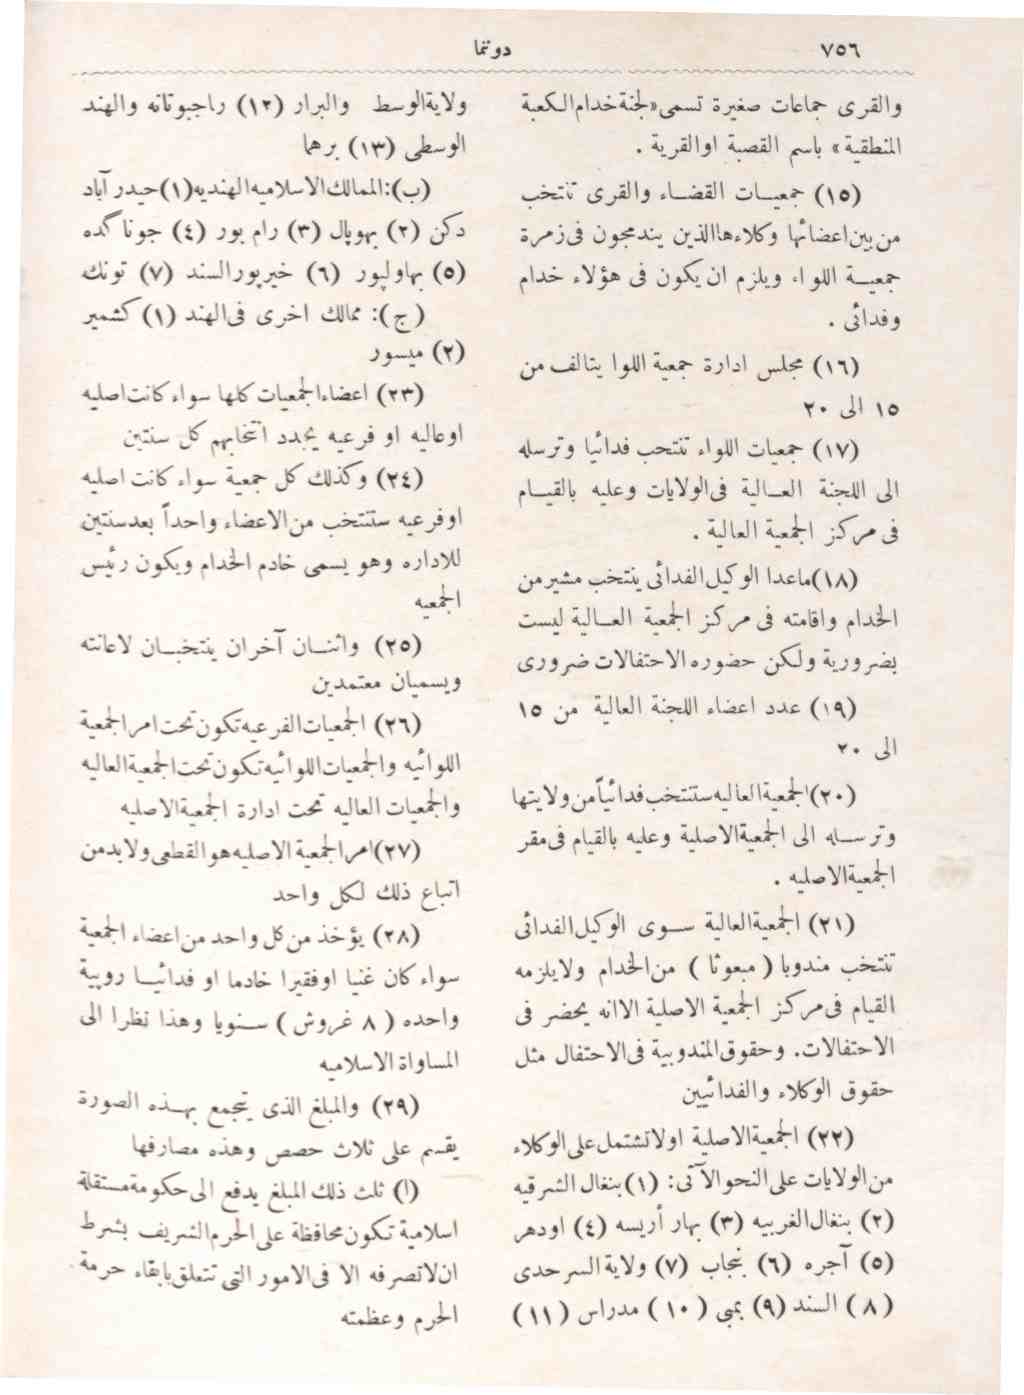 ٧٥٦
دوننما
والقرى جماعات صغيرة تسمى «لجنة خدام الكعبة
المنطقية» باسم القصبة او القرية .
(١٥) جمعيات القضاء والقرى تنتخب
من بين اعضائها وكلاءها الذين يندمجون فى زمرة
جمعية اللواء ويلزم ان يكون فى هؤلاء خدام
وفدائى .
(١٦) مجلس ادارة جمعية اللوا يتالف من
١٥ الى ٢٠
(١٧) جمعيات اللواء تنتحب فدائيا وترسله
الى اللجنة العالية فى الولايات وعليه بالقيام
فى مركز الجمعية العالية .
(١٨) ماعدا الوكيل الفدائى ينتخب مشير من
الخدام واقامته فى مركز الجمعية العالية ليست
بضرورية ولكن حضوره الاحتفالات ضرورى
(١٩) عدد اعضاء اللجنة العالية من ١٥
الى ٢٠
(٢٠) الجمعية العاليه ستنتخب فدائياً من ولايتها
وترسله الى الجمعية الاصلية وعليه بالقيام فى مقر
الجمعية الاصليه .
(٢١) الجمعية العالية سوى الوكيل الفدائى
تنتخب مندوبا ( مبعوثا ) من الخدام ولايلزمه
القيام فى مركز الجمعية الاصلية الا انه يحضر فى
الاحتفالات. وحقوق المندوبية فى الاحتفال مثل
حقوق الوكلاء والفدائيين
(٢٢) الجمعية الاصلية اولا تشتمل على الوكلاء
من الولايات على النحو الآتى: (١) بنغال الشرقيه
(٢) بنغال الغربيه (٣) بهار أريسه (٤) اودهر
(٥) آجره (٦) پنجاب (٧) ولاية السرحدى
(٨) السند (٩) بمبى (١٠) مدراس (١١)
ولاية الوسط والبرار (١٢) راجبوتانه والهند
الوسطى (١٣) برهما
(ب): الممالك الاسلاميه الهنديه (١) حيدر آباد
دكن (٢) بهوپال (٣) رام بور (٤) جوناگده
(٥) بهاولپور (٦) خيرپور السند (٧) تونك
(ج): ممالك اخرى فى الهند (١) كشمير
(٢) ميسور
(٢٣) اعضاء الجمعيات كلها سواء كانت اصليه
اوعاليه او فرعيه يجدد انتخابهم كل سنتين
(٢٤) وكذلك كل جمعية سواء كانت اصليه
اوفرعيه ستنتخب من الاعضاء واحداً بعد سنتين
للاداره وهو يسمى خادم الخدام ويكون رئيس
الجمعيه
(٢٥) واثنان آخران ينتخبان لاعانته
ويسميان معتمدين
(٢٦) الجمعيات الفرعيه تكون تحت امر الجمعية
اللوائيه والجمعيات اللوائيه تكون تحت الجمعية العاليه
والجمعيات العاليه تحت ادارة الجمعية الاصليه
(٢٧) امر الجمعية الاصليه هو القطعى ولابد من
اتباع ذلك لكل واحد
(٢٨) يؤخذ من كل واحد من اعضاء الجمعية
سواء كان غنيا اوفقيرا خادما او فدائيا روبية
واحده ( ٨ غروش ) سنويا وهذا نظرا الى
المساواة الاسلاميه
(٢٩) والمبلغ الذى يتجمع بهذه الصورة
يقسم على ثلاث حصص وهذه مصارفها
(ا) ثلث ذلك المبلغ يدفع الى حكومة مستقلة
اسلامية تكون محافظة على الحرم الشريف بشرط
ان لاتصرفه الا فى الامور التى تتعلق بابقاء حرمة
الحرم وعظمته